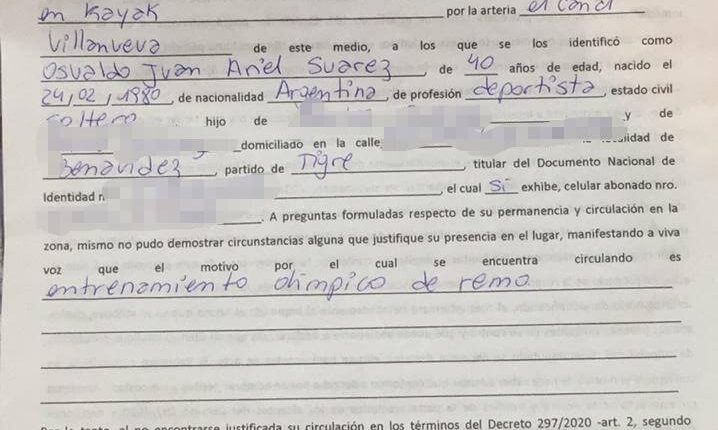 en Kayak por la arteria el canal
Villanueva de este medio, a los que se los identificó como
Osvaldo Juan Ariel Suarez, de 40 años de edad, nacido el
24,02,1980, de nacionalidad Argentina, de profesión deportista, estado civil
soltero hijo de y de
domiciliado en la calle de
Benavidez, partido de Tigre, titular del Documento Nacional de
Identidad el cual Si exhibe, celular abonado nro.
. A preguntas formuladas respecto de su permanencia y circulación en la
zona, mismo no pudo demostrar circunstancias alguna que justifique su presencia en el lugar, manifestando a viva
voz que el motivo por el cual se encuentra circulando es
entrenamiento olimpico de remo
encontrarse justificada su circulación en los términos del Decreto 297/2020 -art. 2, segundo